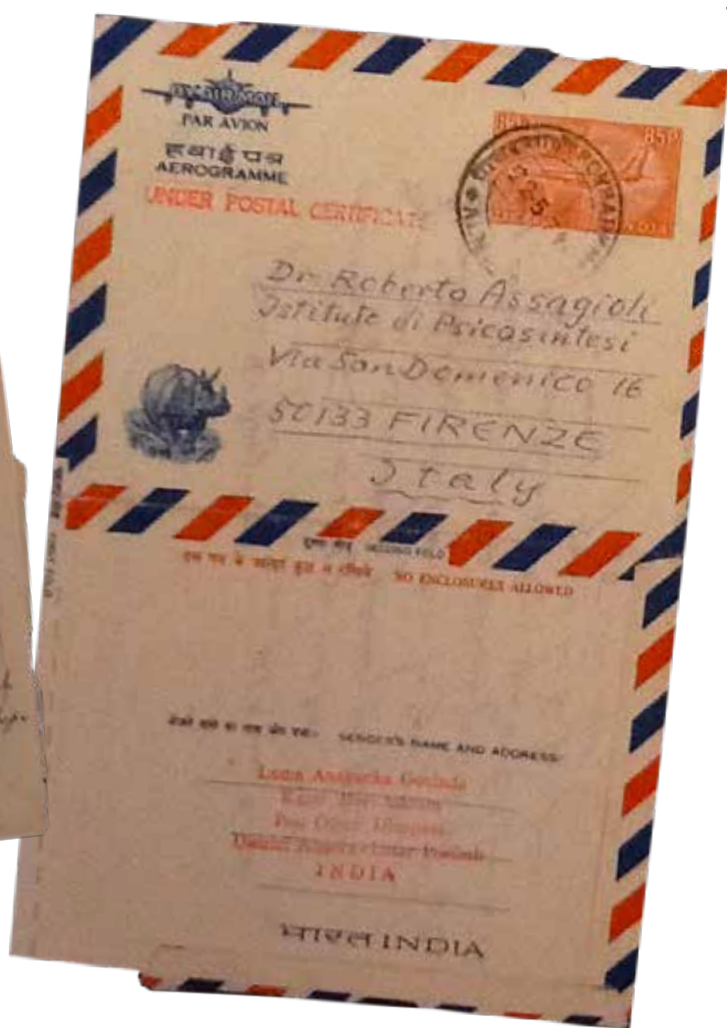 BY AIR MAIL
PAR AVION
हवाई पत्र
AEROGRAMME
UNDER POSTAL CERTIFICATE
85P 85P
BOMBAY
INDIA
Dr Roberto Assagioli
Istitute di Psicosintesi
Via San Domenico 16
50133 FIRENZE
Italy
SECOND FOLD
इस पत्र के अन्दर कुछ न रखिये NO ENCLOSURES ALLOWED
भेजने वाले का नाम और पता:- SENDER'S NAME AND ADDRESS:-
Lama Anagarika Govinda
Kasar Devi Ashram
Post Office
District Almora Uttar Pradesh
INDIA
भारत INDIA